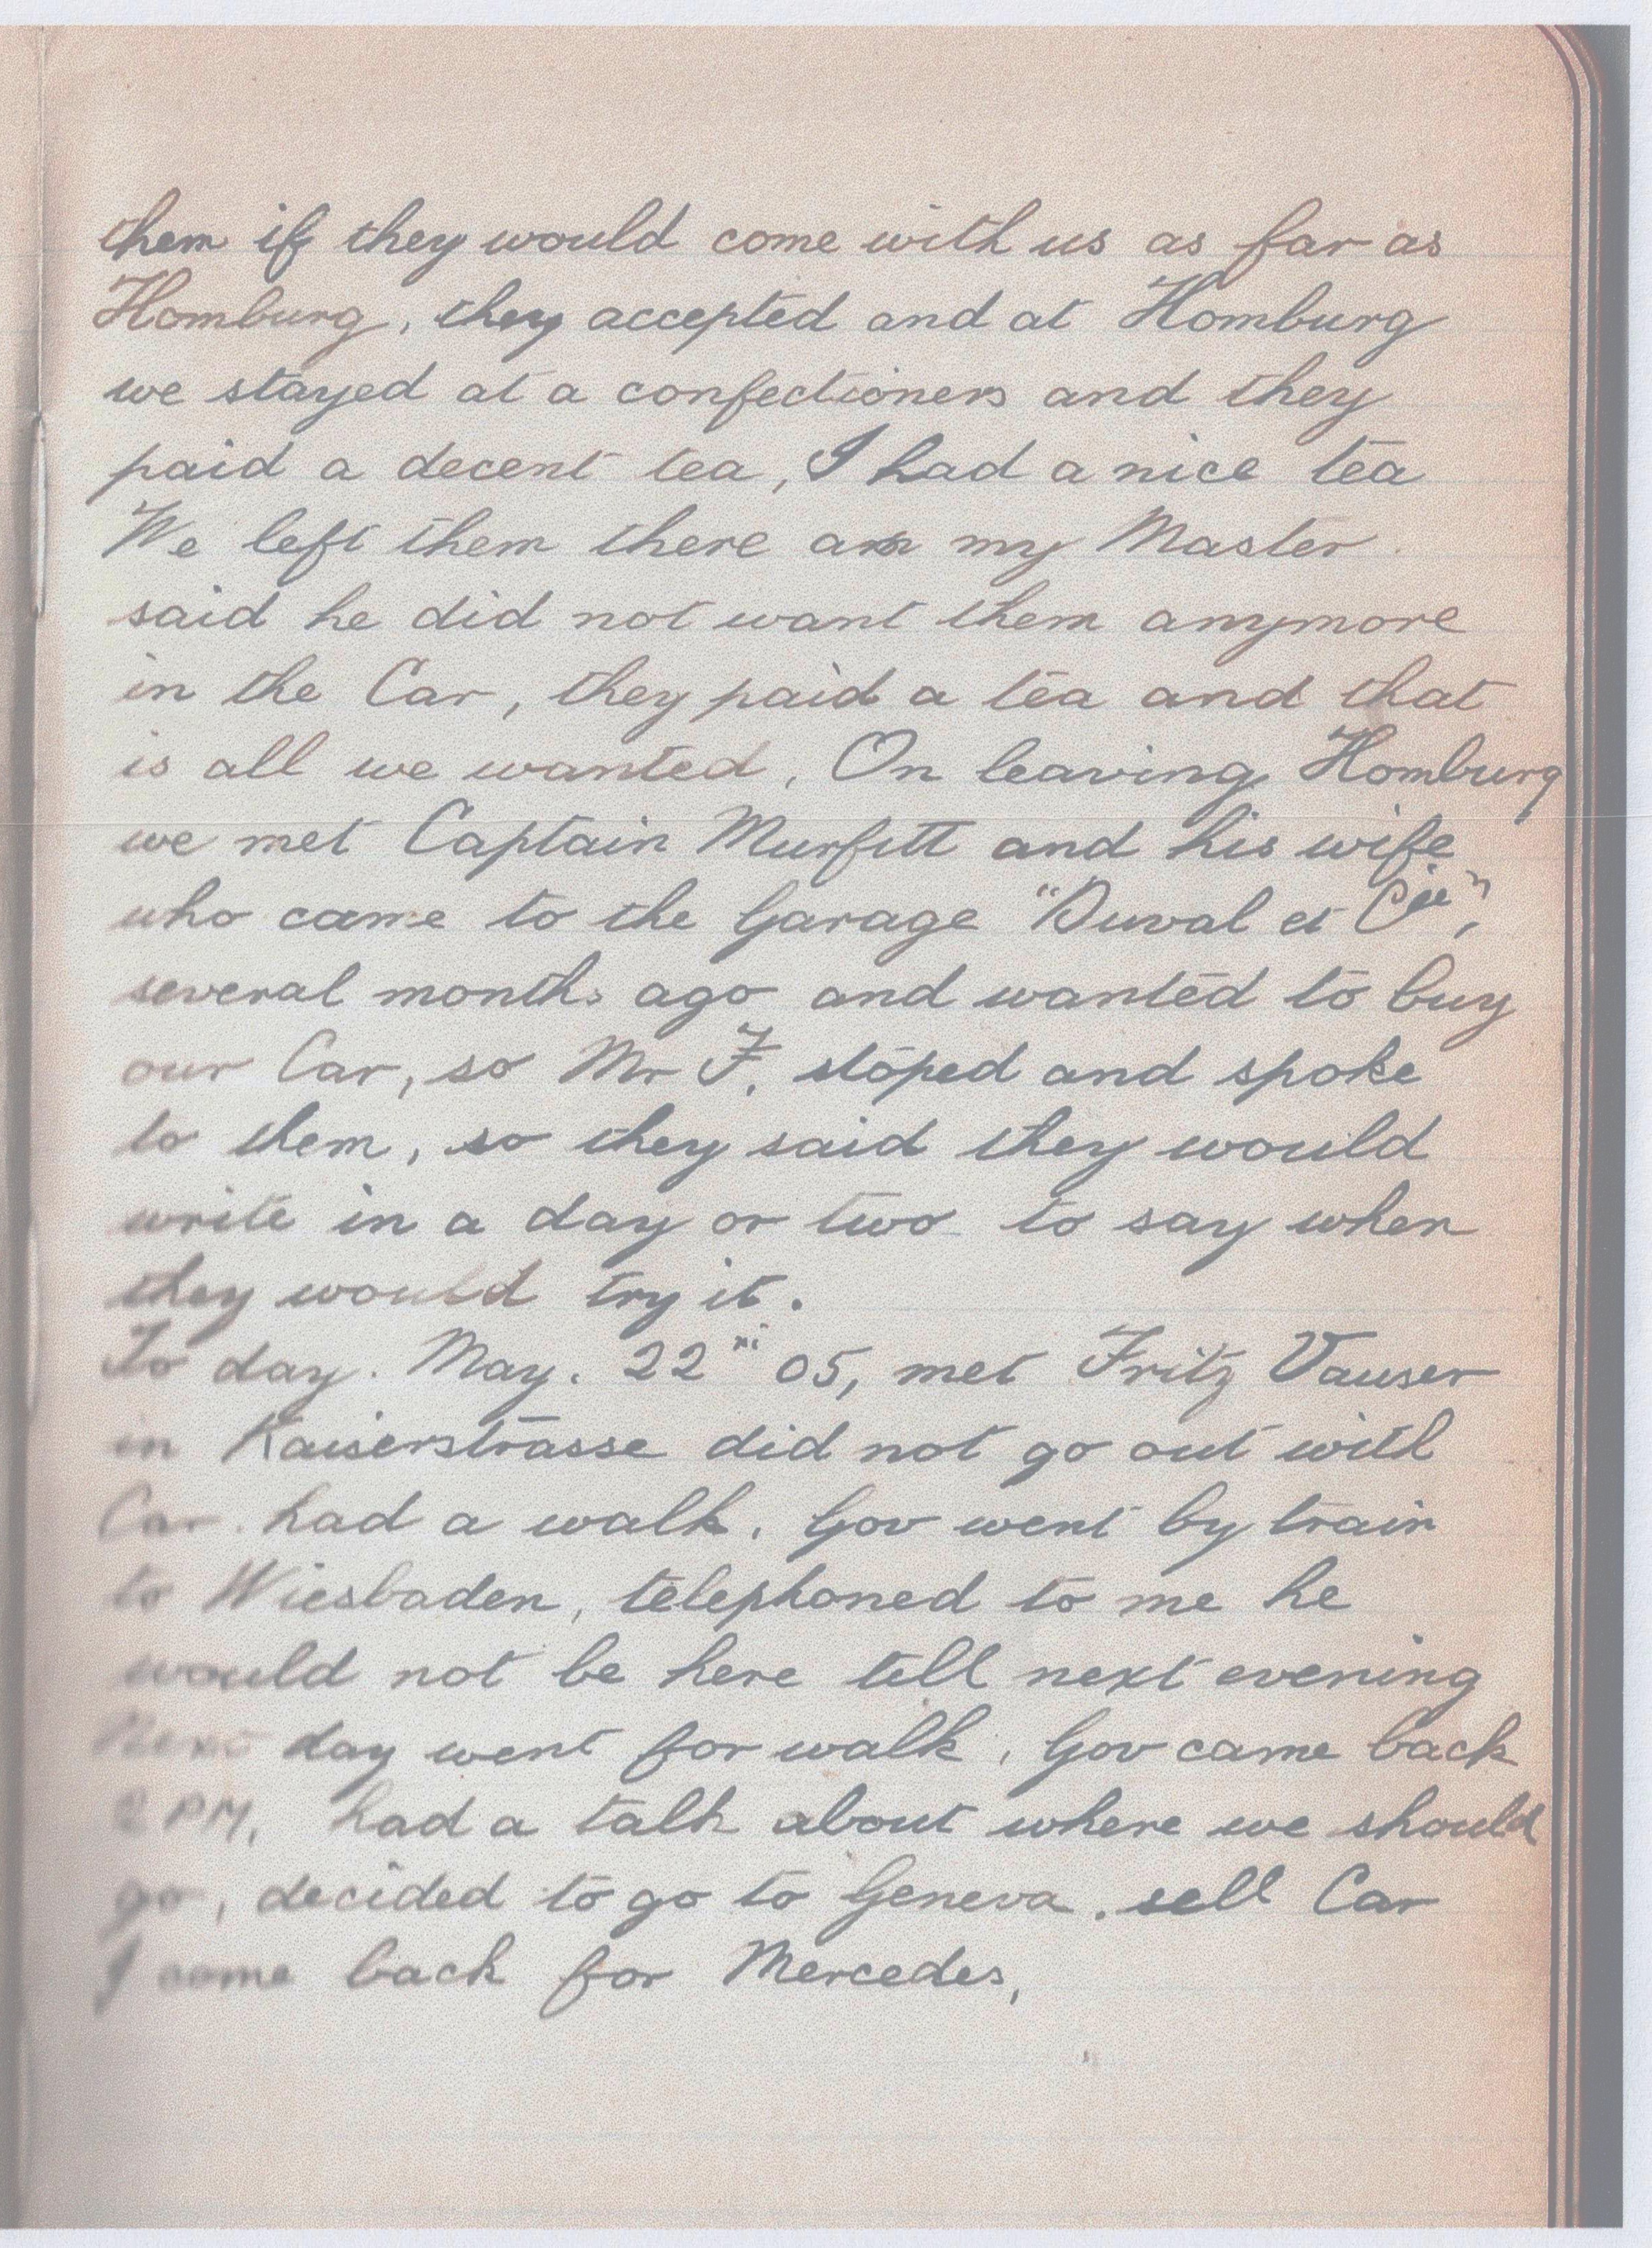 them if they would come with us as far as
Homburg, they accepted and at Homburg
we stayed at a confectioners and they
paid a decent tea, I had a nice tea
We left them there as my Master
said he did not want them anymore
in the Car, they paid a tea and that
is all we wanted. On leaving Homburg
we met Captain Murfitt and his wife
who came to the Garage "Duval et Cie",
several months ago and wanted to buy
our Car, so Mr F. stoped and spoke
to them, so they said they would
write in a day or two to say when
they would try it.
To day. May. 22nd 05, met Fritz Vauser
in Kaiserstrasse did not go out with
Car. had a walk. Gov went by train
to Wiesbaden, telephoned to me he
would not be here till next evening
Next day went for walk. Gov came back
PM. had a talk about where we should
go, decided to go to Geneva. sell Car
I come back for Mercedes,